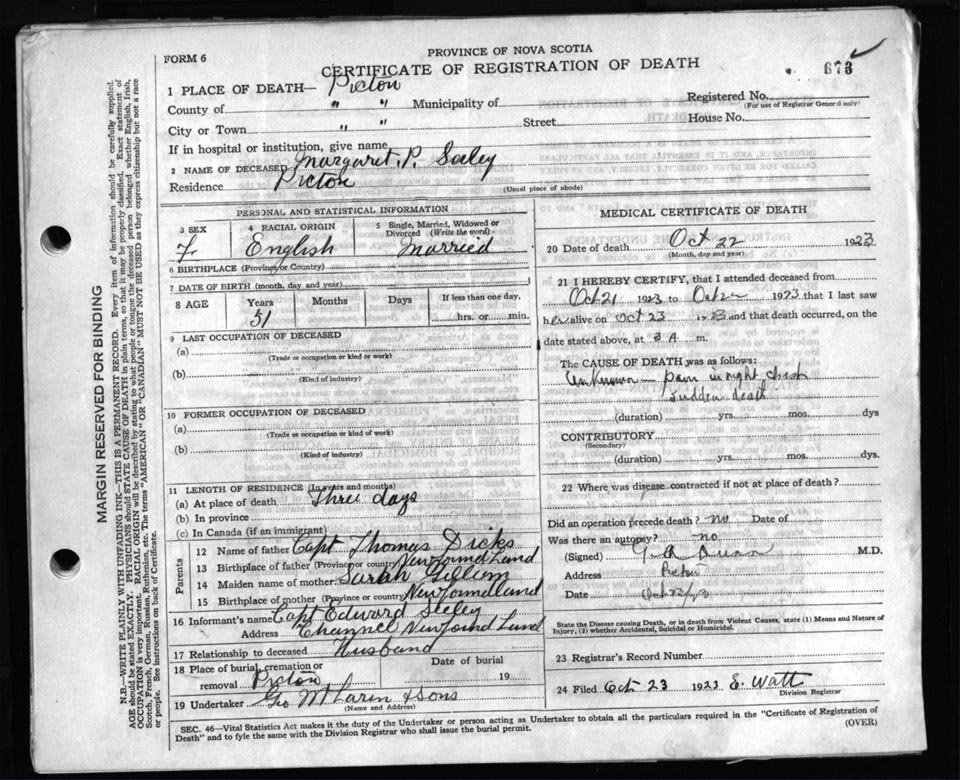 FORM 6
PROVINCE OF NOVA SCOTIA
CERTIFICATE OF REGISTRATION OF DEATH
673
1 PLACE OF DEATH— Picton
Registered No.
(For use of Registrar General only)
County of " " Municipality of
House No.
City or Town " " Street
If in hospital or institution, give name
2 NAME OF DECEASED Margaret. P. Seeley
Residence Picton
(Usual place of abode)
PERSONAL AND STATISTICAL INFORMATION
3 SEX
F.
4 RACIAL ORIGIN
English
5 Single, Married, Widowed or
Divorced (Write the word)
Married
6 BIRTHPLACE (Province or Country)
7 DATE OF BIRTH (month, day and year)
8 AGE
Years
51
Months
Days
If less than one day,
hrs. or min.
9 LAST OCCUPATION OF DECEASED
(a)
(Trade or occupation or kind or work)
(b)
(Kind of industry)
10 FORMER OCCUPATION OF DECEASED
(a)
(Trade or occupation or kind of work)
(b)
(Kind of industry)
11 LENGTH OF RESIDENCE (In years and months)
(a) At place of death Three days
(b) In province
(c) In Canada (if an immigrant)
Parents
12 Name of father Capt Thomas Dicks
13 Birthplace of father (Province or country) Newfoundland
14 Maiden name of mother Sarah
15 Birthplace of mother (Province or country) Newfoundland
16 Informant's name Capt Edward Seeley
Address Channel Newfound Land
17 Relationship to deceased Husband
18 Place of burial, cremation or
removal Picton
Date of burial
19
19 Undertaker Geo McLaren & Sons
(Name and Address)
MEDICAL CERTIFICATE OF DEATH
20 Date of death Oct 22 1923
(Month, day and year)
21 I HEREBY CERTIFY, that I attended deceased from
Oct 21 1923 to Oct 22 1923 that I last saw
her alive on Oct 23 1923 and that death occurred, on
date stated above, at 3 A. m.
The CAUSE OF DEATH was as follows:
Unknown — pain in right chest
sudden death
(duration) yrs. mos. dys
CONTRIBUTORY
(Secondary)
(duration) yrs. mos. dys.
22 Where was disease contracted if not at place of death?
Did an operation precede death? no Date of
Was there an autopsy? no
(Signed) Dunn M.D.
Address Picton
Date
State the Disease causing Death, or in death from Violent Causes, state (1) Means and Nature of
Injury, (2) whether Accidental, Suicidal or Homicidal.
23 Registrar's Record Number
24 Filed Oct 23 1923 E. Watt
Division Registrar
SEC. 46—Vital Statistics Act makes it the duty of the Undertaker or person acting as Undertaker to obtain all the particulars required in the "Certificate of Registration of
Death" and to fyle the same with the Division Registrar who shall issue the burial permit.
(OVER)
MARGIN RESERVED FOR BINDING
N.B.—WRITE PLAINLY WITH UNFADING INK—THIS IS A PERMANENT RECORD. Every item of information should be carefully supplied.
AGE should be stated EXACTLY. PHYSICIANS should STATE CAUSE OF DEATH in plain terms, so that it may be properly classified. Exact statement of
OCCUPATION is very important. RACIAL ORIGIN will be described by stating to what people or tongue the deceased person belonged whether English, Irish,
Scotch, French, German, Russian, Ruthenian, etc. The terms "AMERICAN" OR "CANADIAN" MUST NOT BE USED as they express citizenship but not a race
or people. See instructions on back of Certificate.